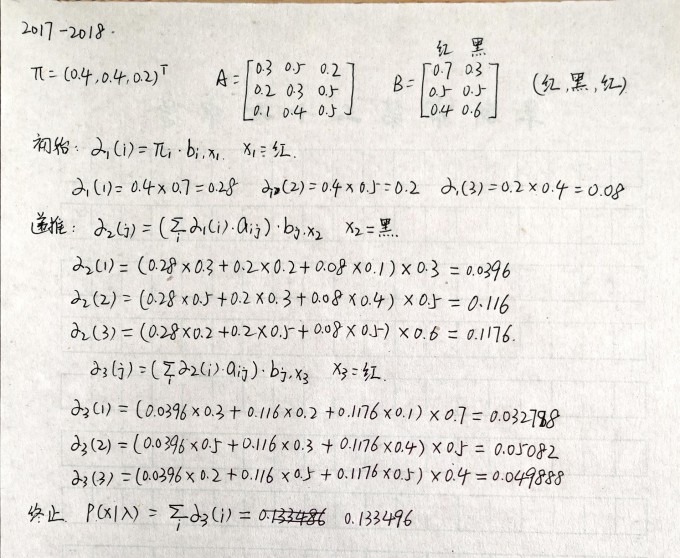 2017-2018.
π=(0.4,0.4,0.2)ᵀ A=[0.3 0.5 0.2 B=[0.7 0.3 (红,黑,红)
红 黑
0.2 0.3 0.5 0.5 0.5
0.1 0.4 0.5] 0.4 0.6]
初始: α₁(i)=πᵢ·bᵢ,x₁. x₁=红.
α₁(1)=0.4×0.7=0.28 α₁(2)=0.4×0.5=0.2 α₁(3)=0.2×0.4=0.08
递推: α₂(j)=(∑ᵢα₁(i)·aᵢⱼ)·bⱼ,x₂ x₂=黑
α₂(1)=(0.28×0.3+0.2×0.2+0.08×0.1)×0.3=0.0396
α₂(2)=(0.28×0.5+0.2×0.3+0.08×0.4)×0.5=0.116
α₂(3)=(0.28×0.2+0.2×0.5+0.08×0.5)×0.6=0.1176.
α₃(j)=(∑ᵢα₂(i)·aᵢⱼ)·bⱼ,x₃ x₃=红.
α₃(1)=(0.0396×0.3+0.116×0.2+0.1176×0.1)×0.7=0.032788
α₃(2)=(0.0396×0.5+0.116×0.3+0.1176×0.4)×0.5=0.05082
α₃(3)=(0.0396×0.2+0.116×0.5+0.1176×0.5)×0.4=0.049888
终止 P(x|λ)=∑ᵢα₃(i)=0.133486 0.133496